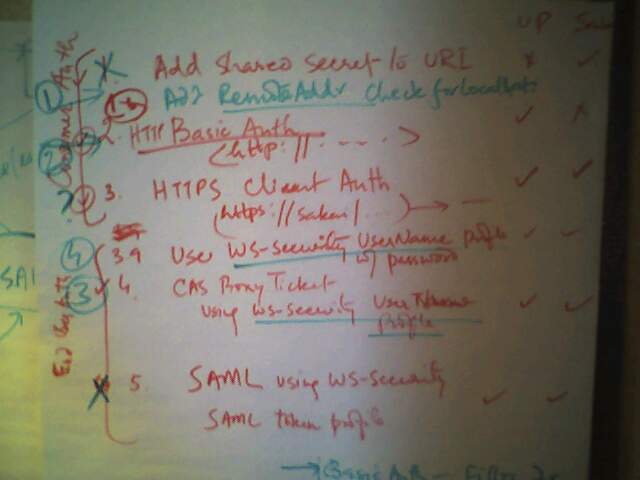 UP
Add shared secret to URI
1-b Add RemoteAddr check for localhost
2. HTTP Basic Auth
(http://.....)
3. HTTPS Client Auth
(https://sakai/...)
4 3.9 Use WS-Security UserName profile
w/ password
3 4. CAS Proxy Ticket
using WS-Security UserName
profile
5. SAML using WS-Security
SAML token profile
End User Auth